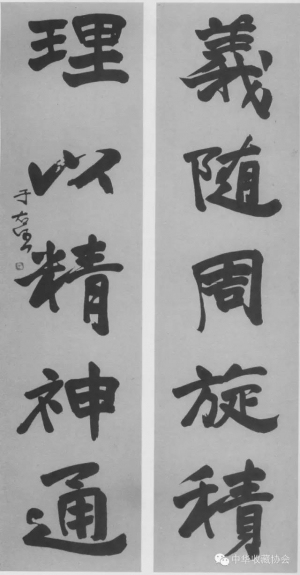 義隨周旋積
理以精神通
于右任
中华收藏协会